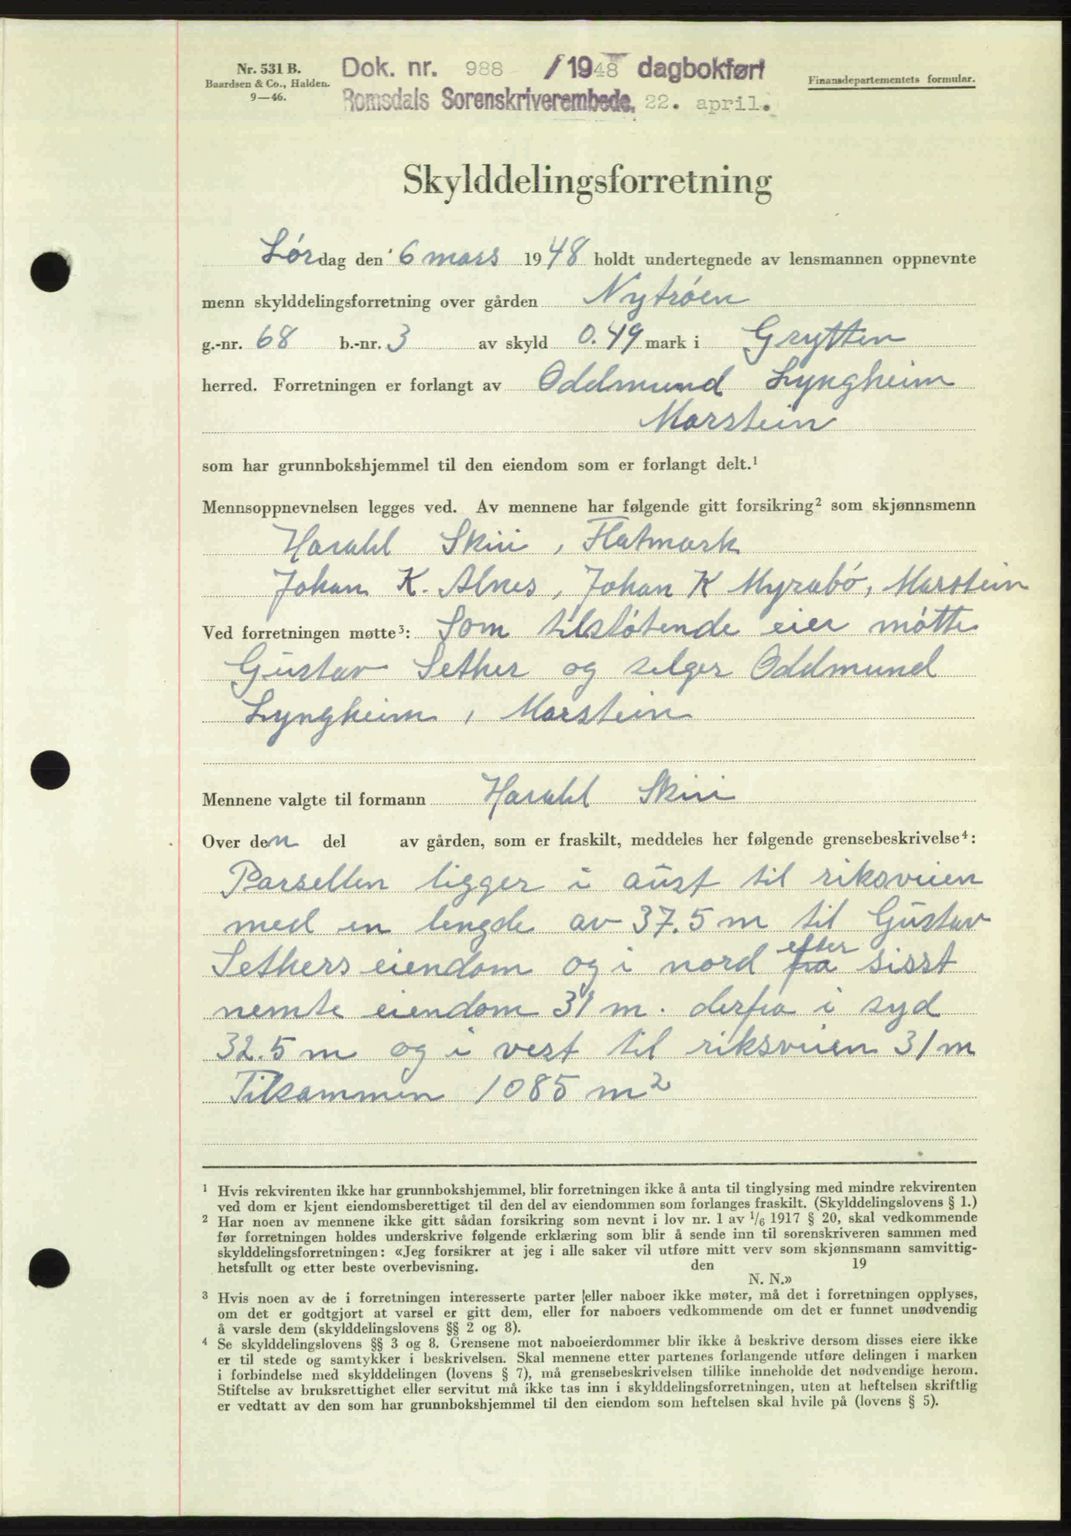 Nr. 531 B.
Baardsen & Co., Halden.
9—46.
Dok. nr. 988 /1948 dagbokført
Romsdals Sorenskriverembede. 22. april.
Finansdepartementets formular.
Skylddelingsforretning
Lørdag den 6 mars 1948 holdt undertegnede av lensmannen oppnevnte
menn skylddelingsforretning over gården Nytrøen
g.-nr. 68 b.-nr. 3 av skyld 0.49 mark i Grytten
herred. Forretningen er forlangt av Oddmund Lyngheim
Marstein
som har grunnbokshjemmel til den eiendom som er forlangt delt.¹
Mennsoppnevnelsen legges ved. Av mennene har følgende gitt forsikring² som skjønnsmenn
Harald Skiri, Flatmark
Johan K. Alnes, Johan K Myrabö, Marstein
Ved forretningen møtte³: Som tilstötende eier mötte
Gustav Sether og selger Oddmund
Lyngheim, Marstein
Mennene valgte til formann Harald Skiri
Over den del av gården, som er fraskilt, meddeles her følgende grensebeskrivelse⁴:
Parsellen ligger i aust til riksveien
med en lengde av 37.5 m til Gustav
Sethers eiendom og i nord fra efter sisst
nemte eiendom 31 m. derfra i syd
32.5 m og i vest til riksveien 31 m
Tilsammen 1085 m²
¹ Hvis rekvirenten ikke har grunnbokshjemmel, blir forretningen ikke å anta til tinglysing med mindre rekvirenten
ved dom er kjent eiendomsberettiget til den del av eiendommen som forlanges fraskilt. (Skylddelingslovens § 1.)
² Har noen av mennene ikke gitt sådan forsikring som nevnt i lov nr. 1 av 1/6 1917 § 20, skal vedkommende
før forretningen holdes underskrive følgende erklæring som blir å sende inn til sorenskriveren sammen med
skylddelingsforretningen: «Jeg forsikrer at jeg i alle saker vil utføre mitt verv som skjønnsmann samvittig-
hetsfullt og etter beste overbevisning. den 19
N. N.»
³ Hvis noen av de i forretningen interesserte parter eller naboer ikke møter, må det i forretningen opplyses,
om det er godtgjort at varsel er gitt dem, eller for naboers vedkommende om det er funnet unødvendig
å varsle dem (skylddelingslovens §§ 2 og 8).
⁴ Se skylddelingslovens §§ 3 og 8. Grensene mot naboeierdommer blir ikke å beskrive dersom disses eiere ikke
er til stede og samtykker i beskrivelsen. Skal mennene etter partenes forlangende utføre delingen i marken
i forbindelse med skylddelingen (lovens § 7), må grensebeskrivelsen tillike inneholde det nødvendige herom.
Stiftelse av bruksrettighet eller servitut må ikke tas inn i skylddelingsforretningen, uten at heftelsen skriftlig
er vedtatt av den som har grunnbokshjemmel til den eiendom som heftelsen skal hvile på (lovens § 5).